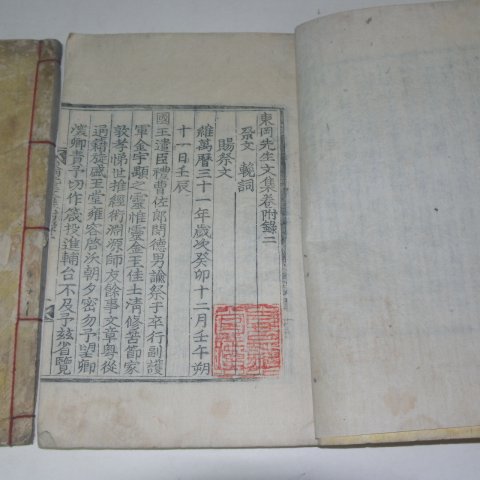 東岡先生文集卷附錄二
祭文 輓詞
賜祭文
維萬曆三十一年歲次癸卯十二月壬午朔
十一日壬辰
國王遣臣禮曹佐郎閔德男諭祭于卒行副護
軍金宇顒之靈惟靈金玉佳士淸修苦節家
敦孝悌世推經術淵源師友餘事文章粤從
通籍旋蹑玉堂雍容啓沃朝夕密勿予望卿
深卿責予切作箴投進輔台不及予玆省覽